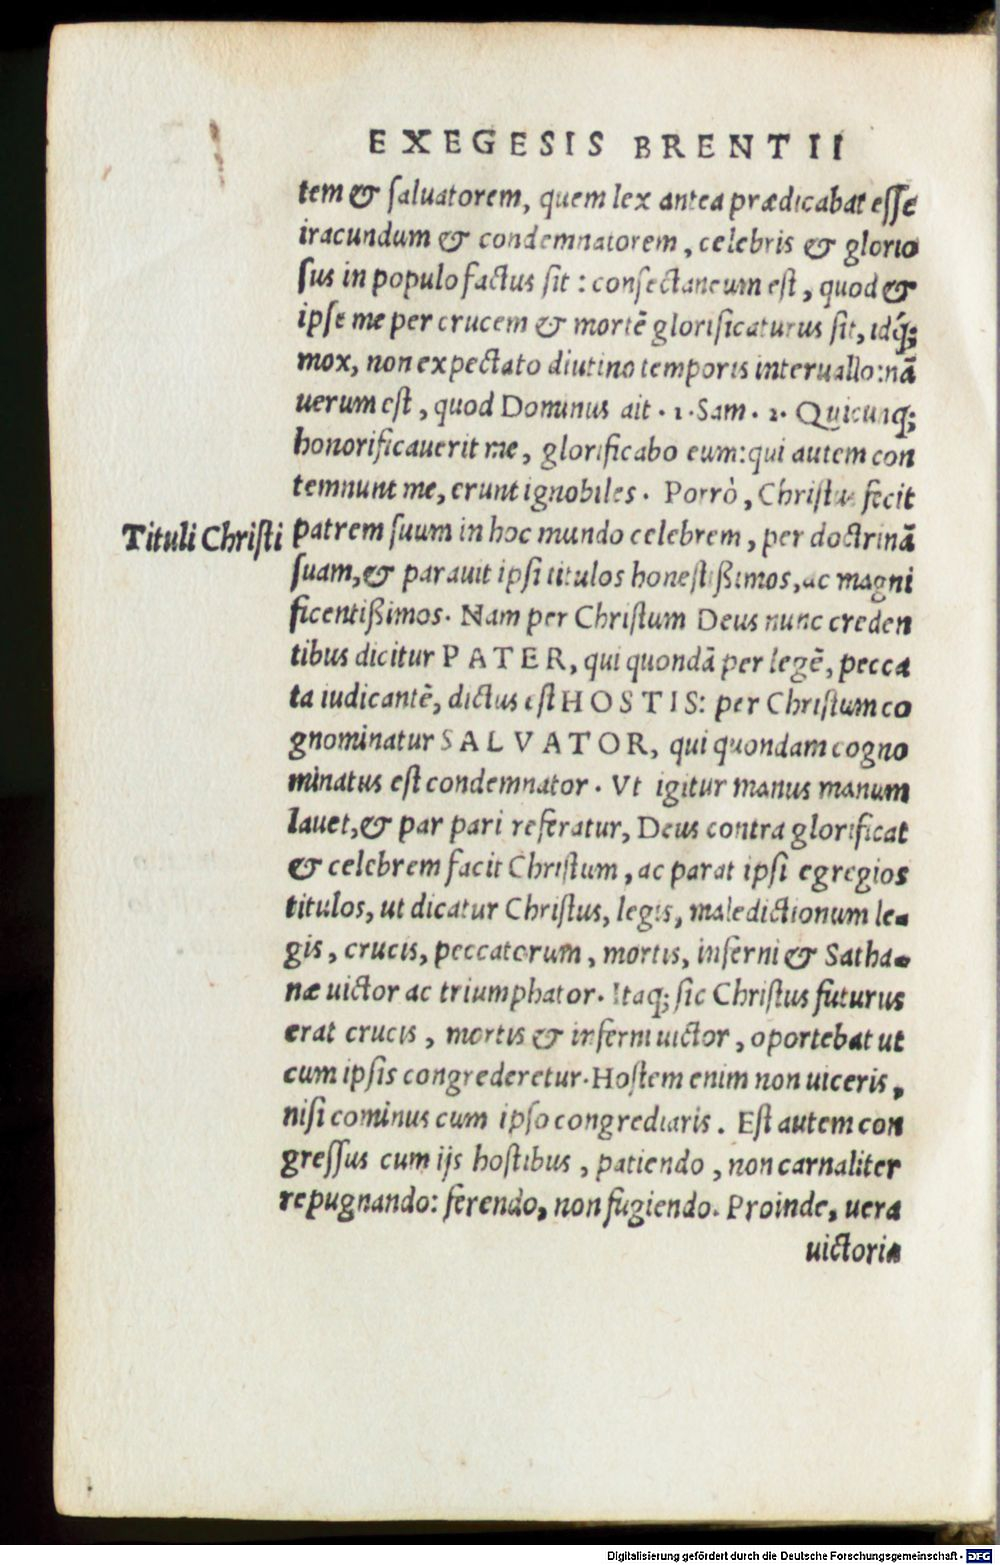 EXEGESIS BRENTII
tem & ſaluatorem, quem lex antea prædicabat eſſe
iracundum & condemnatorem, celebris & glorio
ſus in populo factus ſit: conſectaneum eſt, quod &
ipſe me per crucem & mortē glorificaturus ſit, idq́;
mox, non expectato diutino temporis interuallo: nā
uerum eſt, quod Dominus ait. 1. Sam. 2. Quicunq;
honorificauerit me, glorificabo eum: qui autem con
temnunt me, erunt ignobiles. Porrò, Chriſtus fecit
Tituli Chriſti
patrem ſuum in hoc mundo celebrem, per doctrinā
ſuam, & parauit ipſi titulos honeſtißimos, ac magni
ficentißimos. Nam per Chriſtum Deus nunc creden
tibus dicitur PATER, qui quondā per legē, pecca
ta iudicantē, dictus eſt HOSTIS: per Chriſtum co
gnominatur SALVATOR, qui quondam cogno
minatus eſt condemnator. Vt igitur manus manum
lauet, & par pari referatur, Deus contra glorificat
& celebrem facit Chriſtum, ac parat ipſi egregios
titulos, ut dicatur Chriſtus, legis, maledictionum le-
gis, crucis, peccatorum, mortis, inferni & Satha-
næ uictor ac triumphator. Itaq; ſic Chriſtus futurus
erat crucis, mortis & inferni uictor, oportebat ut
cum ipſis congrederetur. Hoſtem enim non uiceris,
niſi cominus cum ipſo congrediaris. Eſt autem con
greſſus cum ijs hoſtibus, patiendo, non carnaliter
repugnando: ferendo, non fugiendo. Proinde, uera
uictoria
Digitalisierung gefördert durch die Deutsche Forschungsgemeinschaft - DFG